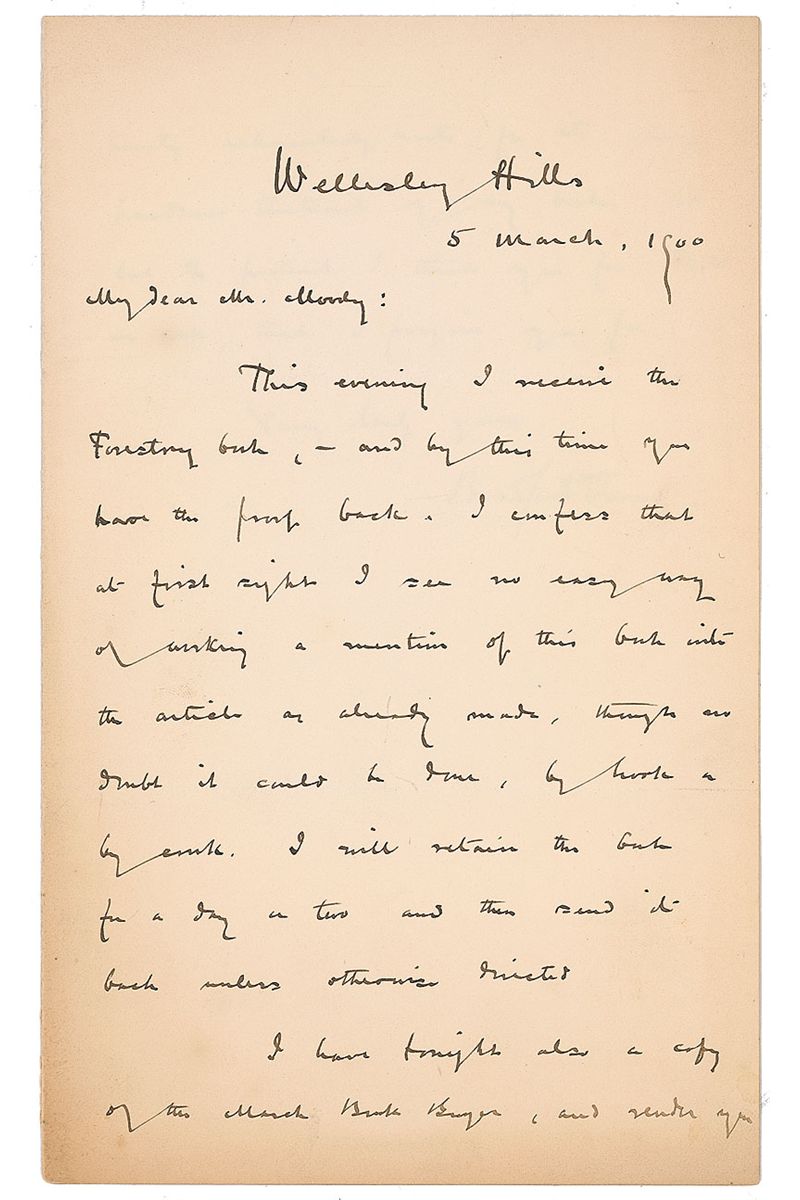 Wellesley Hills
5 March, 1900
My dear Mr. Moody:
This evening I receive the
Forestry book, – and by this time you
have the proof back. I confess that
at first sight I see no easy way
of working a mention of this book into
the article as already made, though no
doubt it could be done, by hook or
by crook. I will retain the book
for a day or two and then send it
back unless otherwise directed
I have tonight also a copy
of the March Book Buyer, and render you